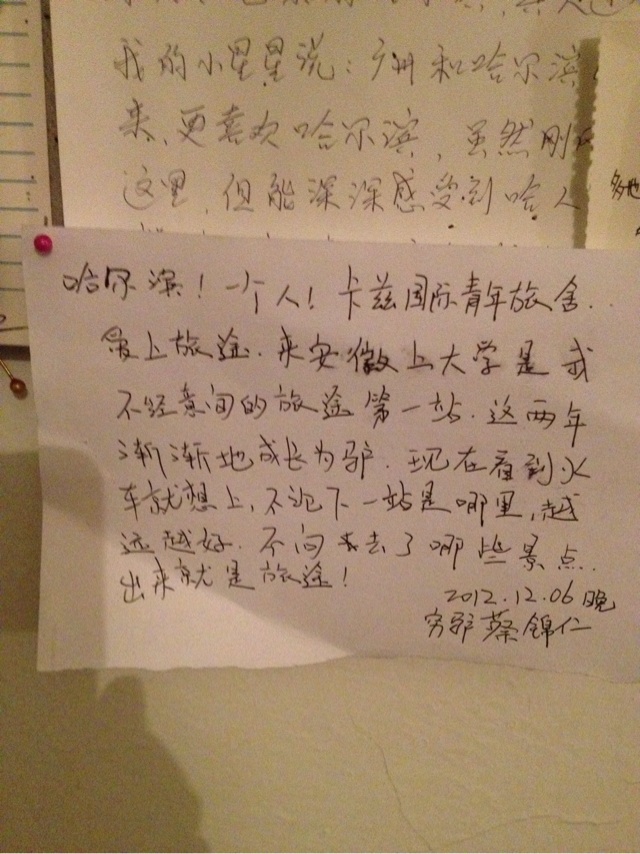 我的小星星说：广州和哈尔滨
来，更喜欢哈尔滨，虽然刚
这里，但能深深感受到哈人
哈尔滨！一个人！卡兹国际青年旅舍..
爱上旅途.来安徽上大学是我
不经意间的旅途第一站.这两年
渐渐地成长为驴.现在看到火
车就想上,不论下一站是哪里,越
远越好.不问我去了哪些景点..
出来就是旅途！
2012.12.06晚
穷驴蔡锦仁